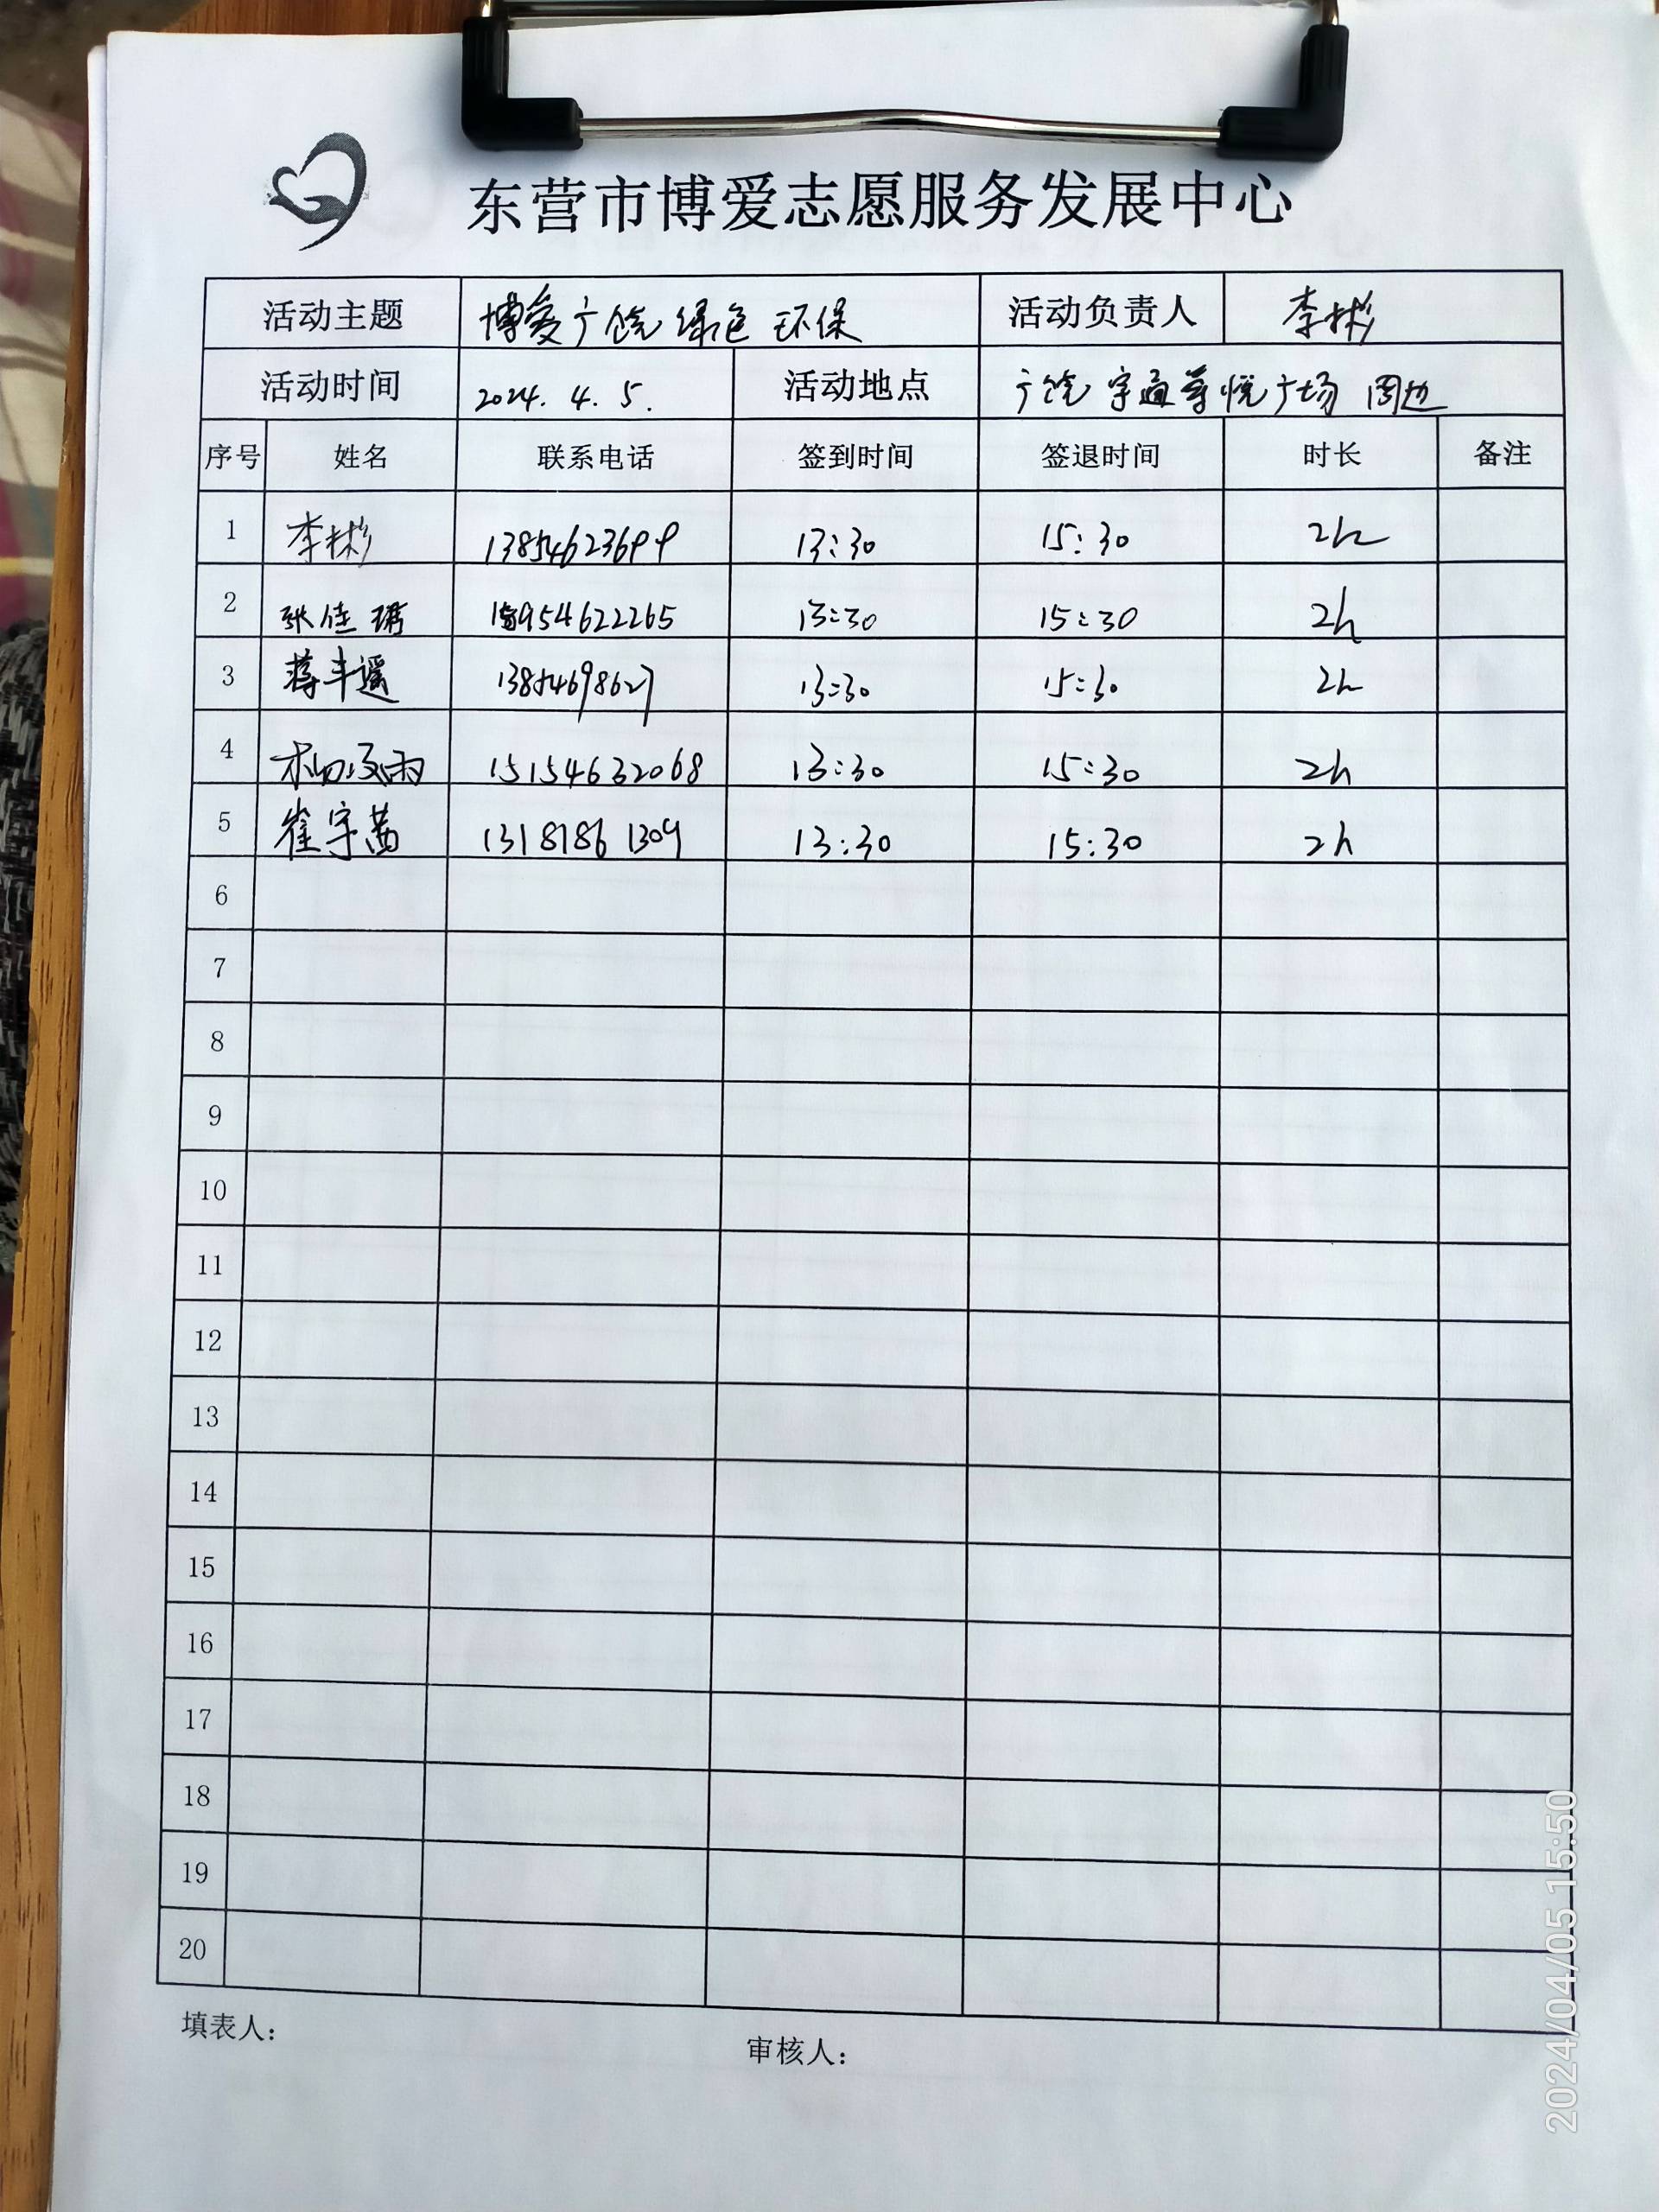 东营市博爱志愿服务发展中心
活动主题 博爱广饶 绿色 环保 活动负责人 李彬
活动时间 2024. 4. 5. 活动地点 广饶 宇通尊悦广场 周边
序号 姓名 联系电话 签到时间 签退时间 时长 备注
1 李彬 13854623699 13:30 15:30 2h
2 张佳 15954622265 13:30 15:30 2h
3 蒋丰遥 13854698627 13:30 15:30 2h
4 雨 15154632068 13:30 15:30 2h
5 崔宇茜 13181861309 13:30 15:30 2h
6
7
8
9
10
11
12
13
14
15
16
17
18
19
20
填表人: 审核人:
2024/04/05 15:50